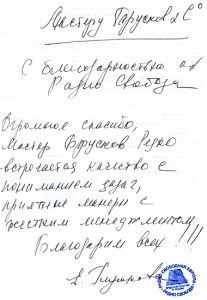 Мастеру Гарусков & Cº
С благодарностью от
Радио Свобода
Огромное спасибо,
Мастер Гарусков Редко
встречается качество с
пониманием задач,
приятные манеры с
жестким менеджментом
Благодарим всех !!!